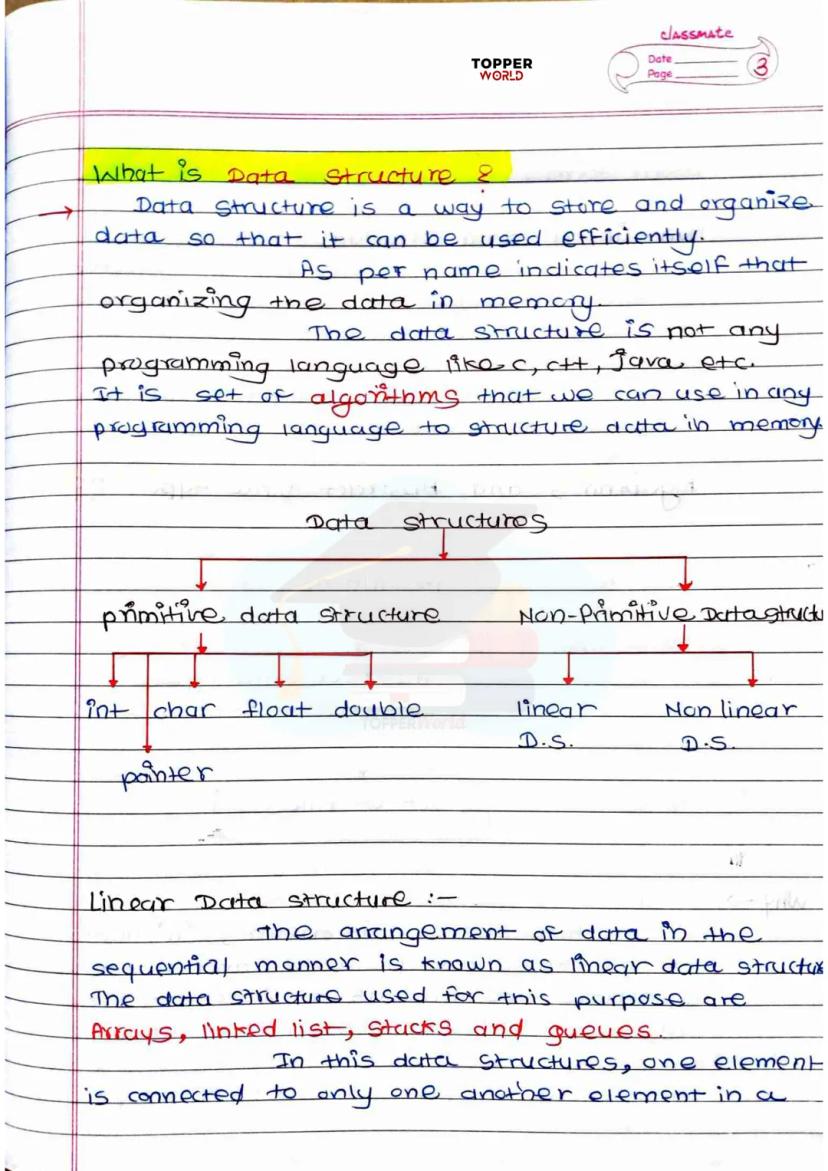 classmate
Date
Page 3
TOPPER
WORLD
What is Data Structure ?
Data structure is a way to store and organize
data so that it can be used efficiently.
As per name indicates itself that
organizing the data in memory.
The data structure is not any
programming language like c, c++, java etc.
It is set of algorithms that we can use in any
programming language to structure data in memory
Data structures
primitive data structure Non-Primitive Data struct
int char float double linear Non linear
D.S. D.S.
pointer
TOPPERWorld
Linear Data structure :-
The arrangement of data in the
sequential manner is known as linear data structur
The data structure used for this purpose are
Arrays, linked list, stacks and queues.
In this data structures, one element
is connected to only one another element in a